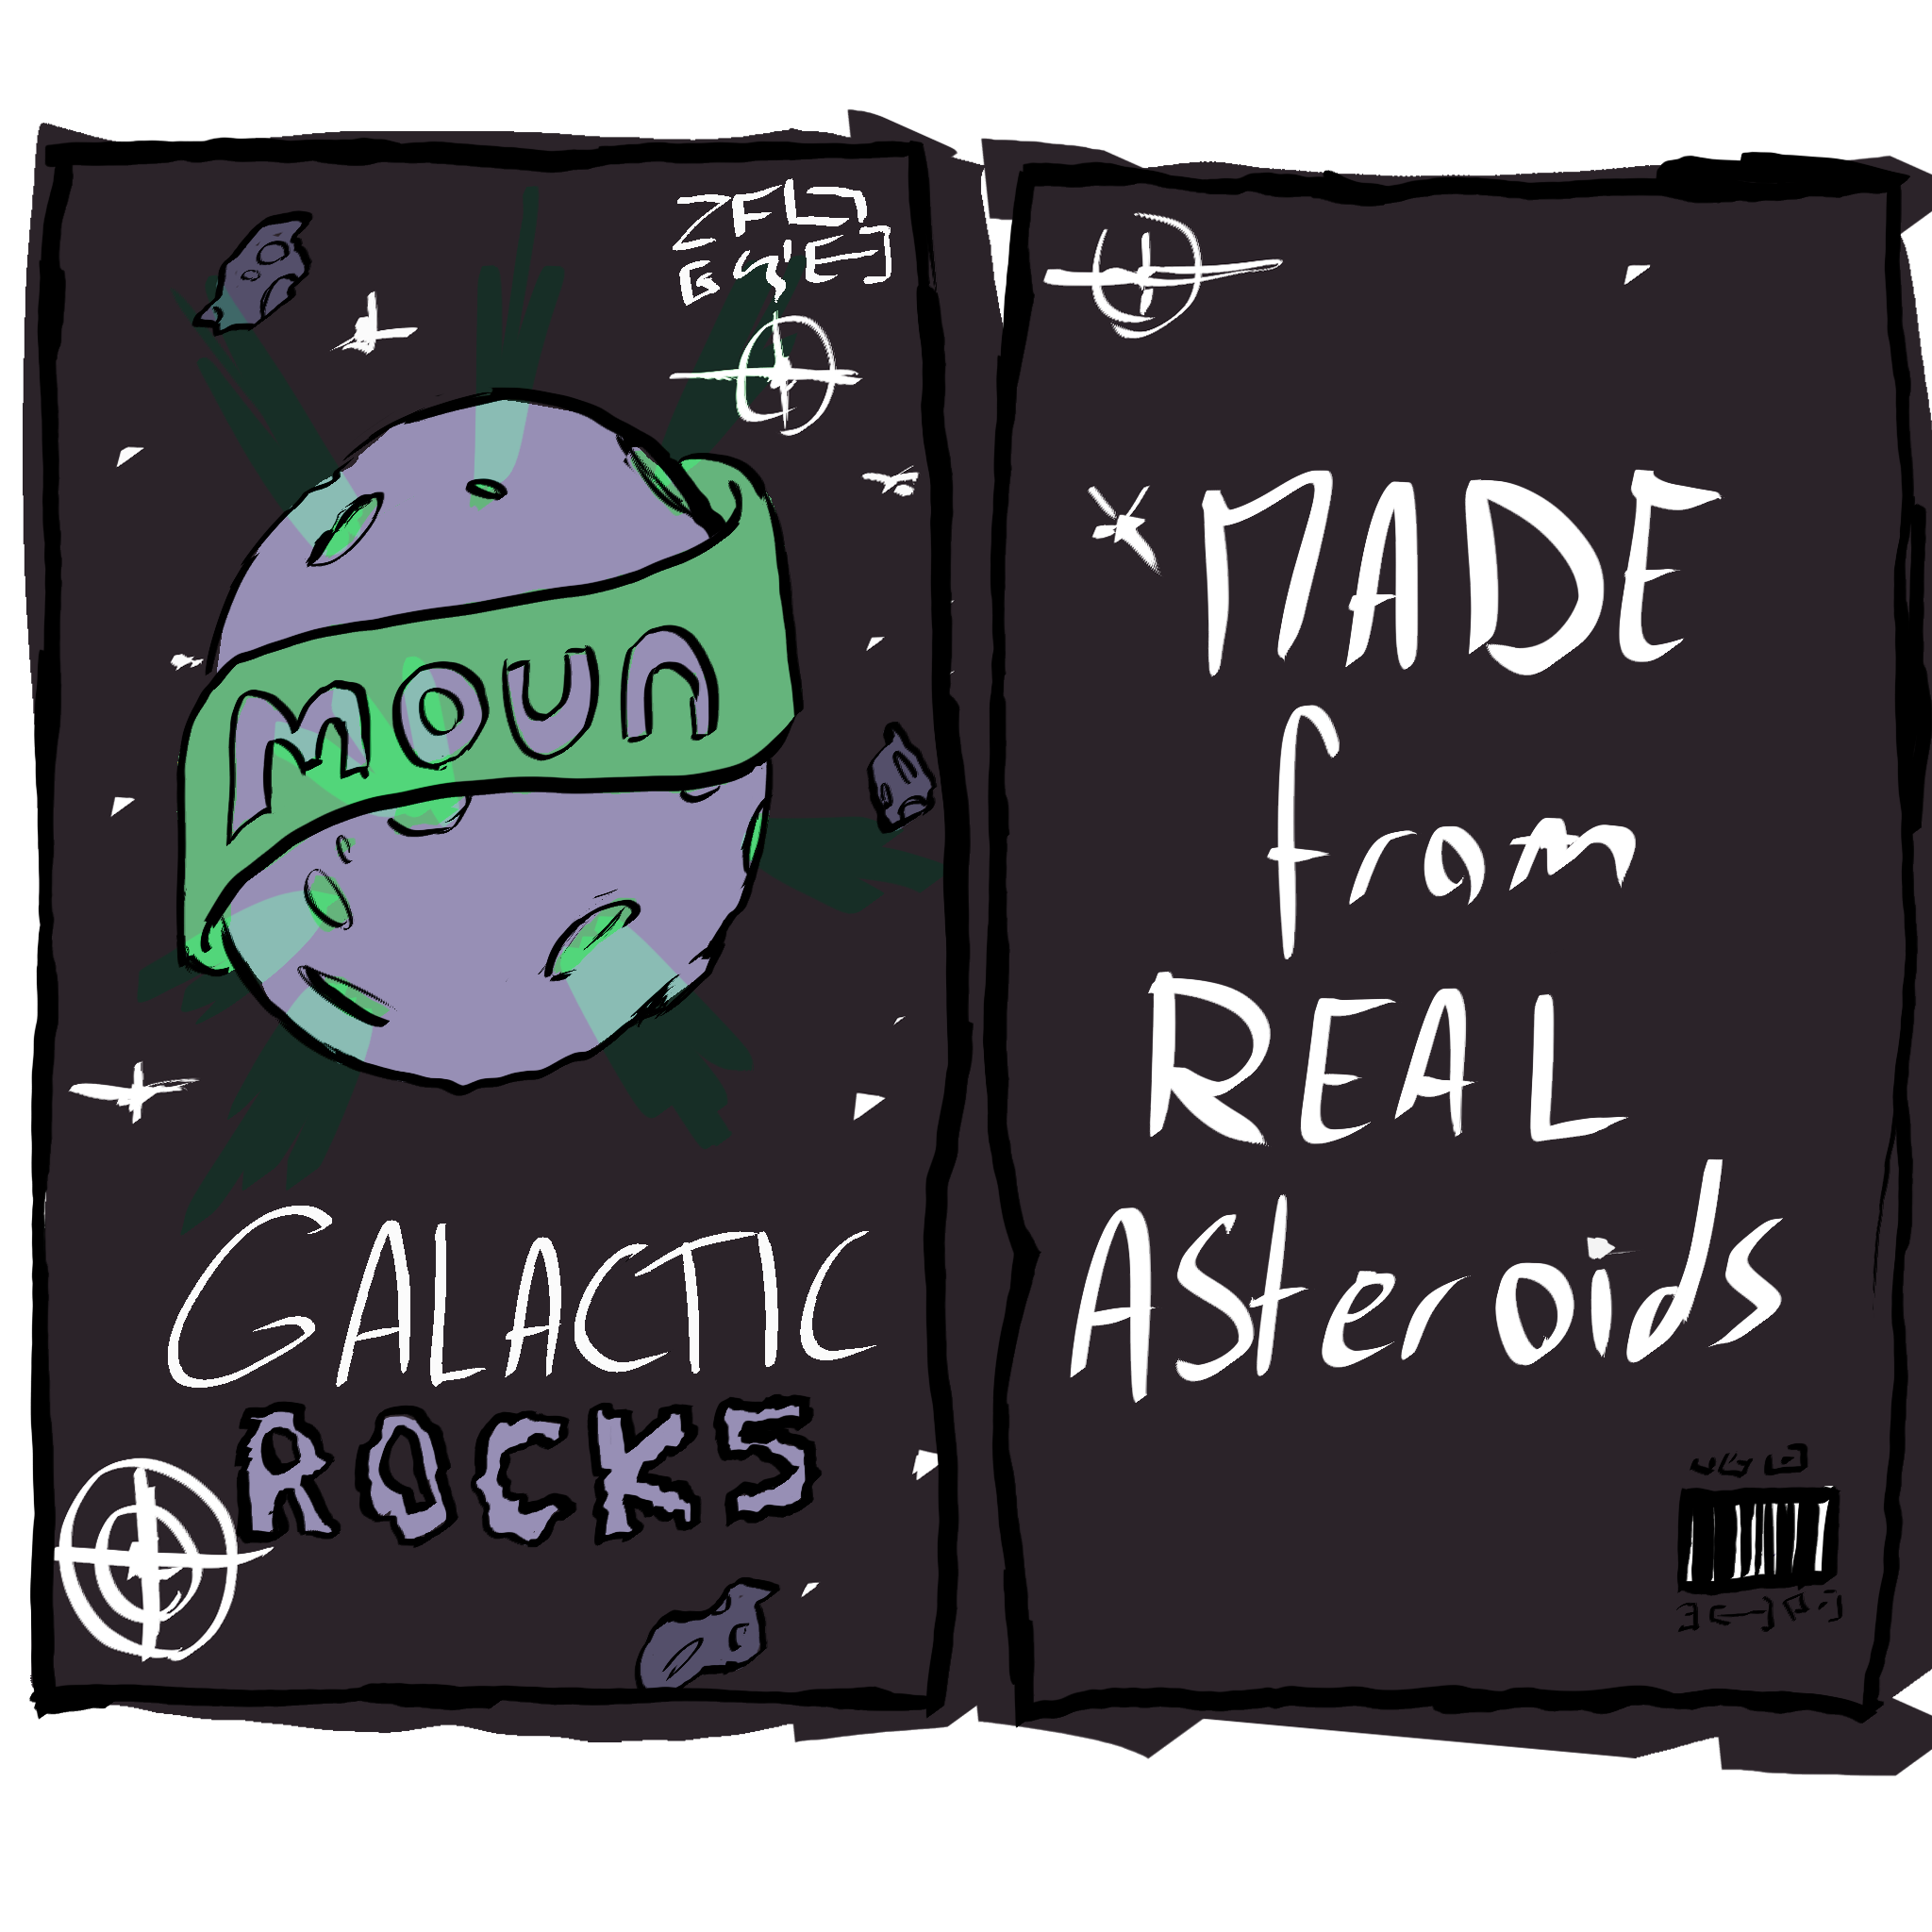 MOUN
GALACTIC
ROCKS
*MADE
from
REAL
Asteroids